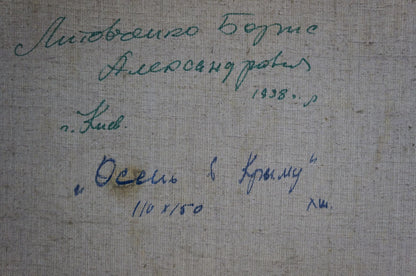 Литовченко Борис
Александрович
1998 г.
г. Киев.
„Осень в Крыму“
110 x 150 хм.